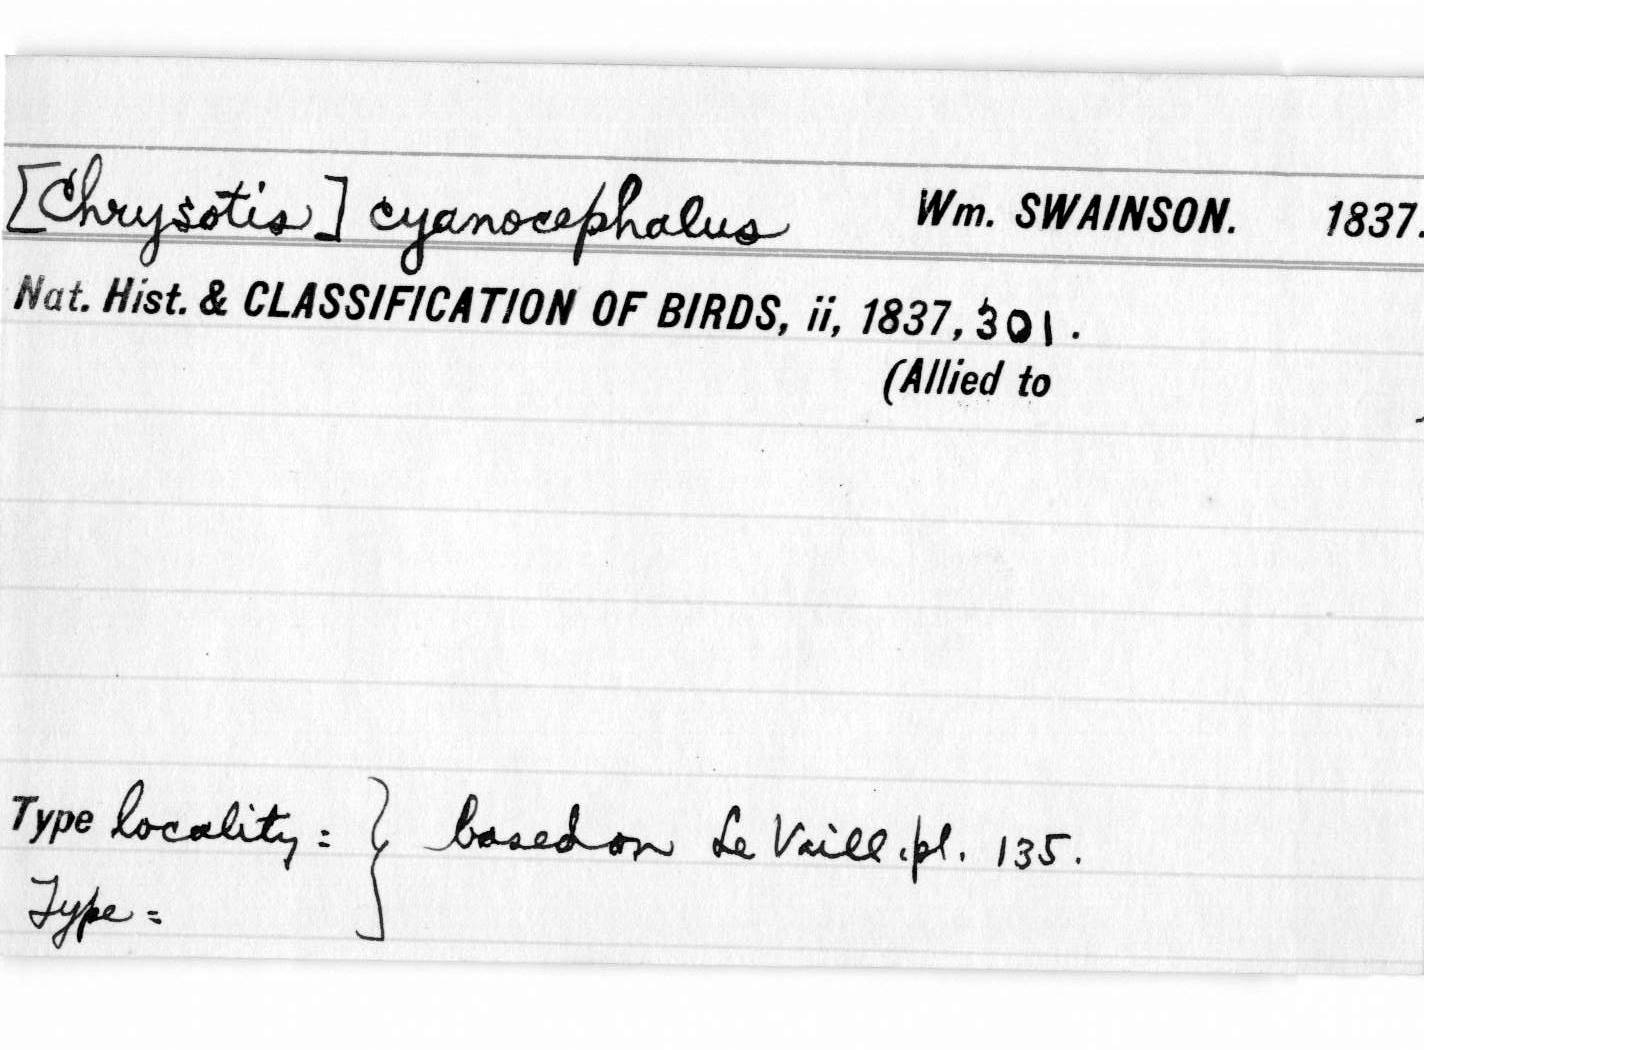 [Chrysotis] cyanocephalus Wm. SWAINSON. 1837.
Nat. Hist. & CLASSIFICATION OF BIRDS, ii, 1837, 301.
(Allied to )
Type locality = } based on Le Vaill. pl. 135.
Type =